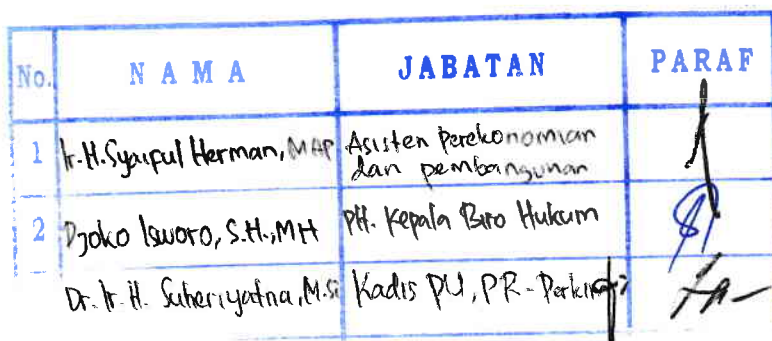 No. N A M A JABATAN PARAF
1 Ir. H. Syaiful Herman, MAP Asisten Perekonomian
dan pembangunan
2 Djoko Isworo, S.H., MH PH. Kepala Biro Hukum
Dr. Ir. H. Suheriyatna, M.Si Kadis PU, PR-Perkim